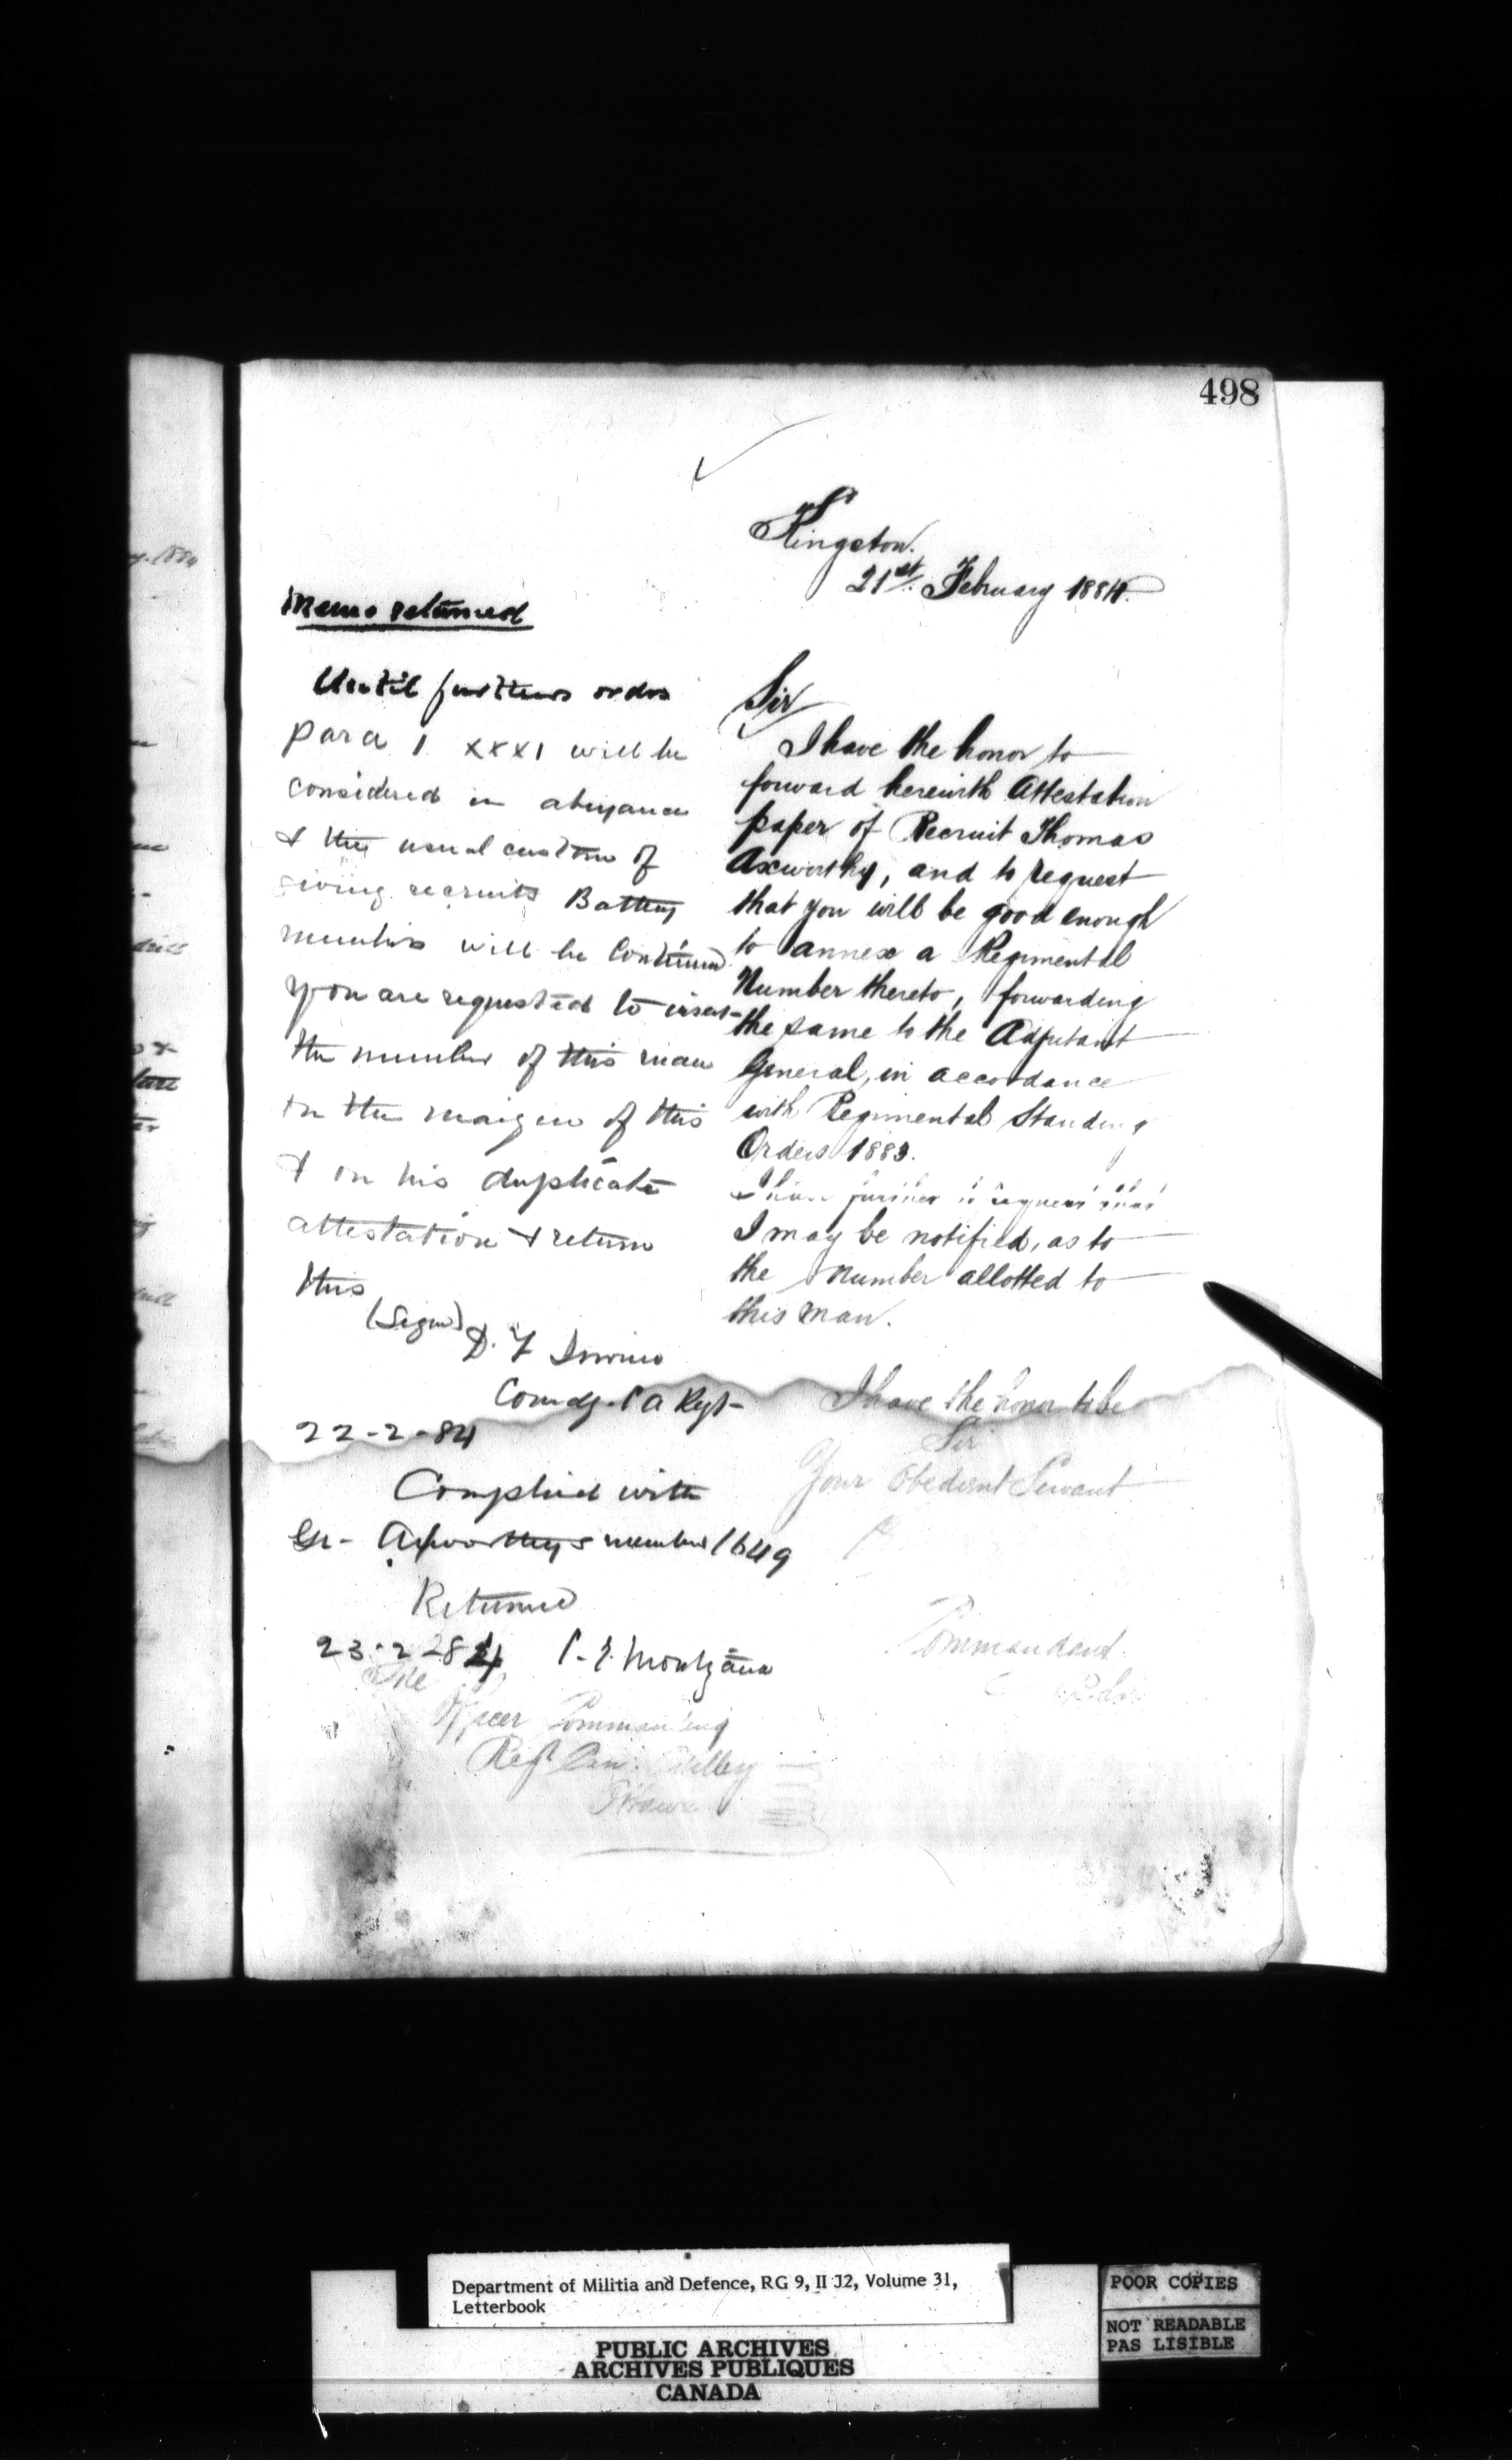 498
Kingston.
21st. February 1884.
Sir
I have the honor to
forward herewith Attestation
paper of Recruit Thomas
Axworthy, and to request
that you will be good enough
to annex a Regimental
Number thereto, forwarding
the same to the Adjutant
General, in accordance
with Regimental Standing
Orders 1883.
I have further to request that
I may be notified, as to
the Number allotted to
this man.
I have the honor to be
Sir
Your Obedient Servant
Commandant
Memo returned
Until further orders
para 1 xxx1 will be
considered in abeyance
& the usual custom of
giving recruits Battery
numbers will be continued
you are requested to insert
the number of this man
in the margin of this
& on his duplicate
attestation & return
this
(Signed) D. T Irwin
Comdg. C A Regt
22-2-84
Complied with
Gr- Axworthys number 1649
Returned
23-2-84
The
Officer Commanding
Regt Can. Artillery
Ottawa
Department of Militia and Defence, RG 9, II J2, Volume 31,
Letterbook
PUBLIC ARCHIVES
ARCHIVES PUBLIQUES
CANADA
POOR COPIES
NOT READABLE
PAS LISIBLE